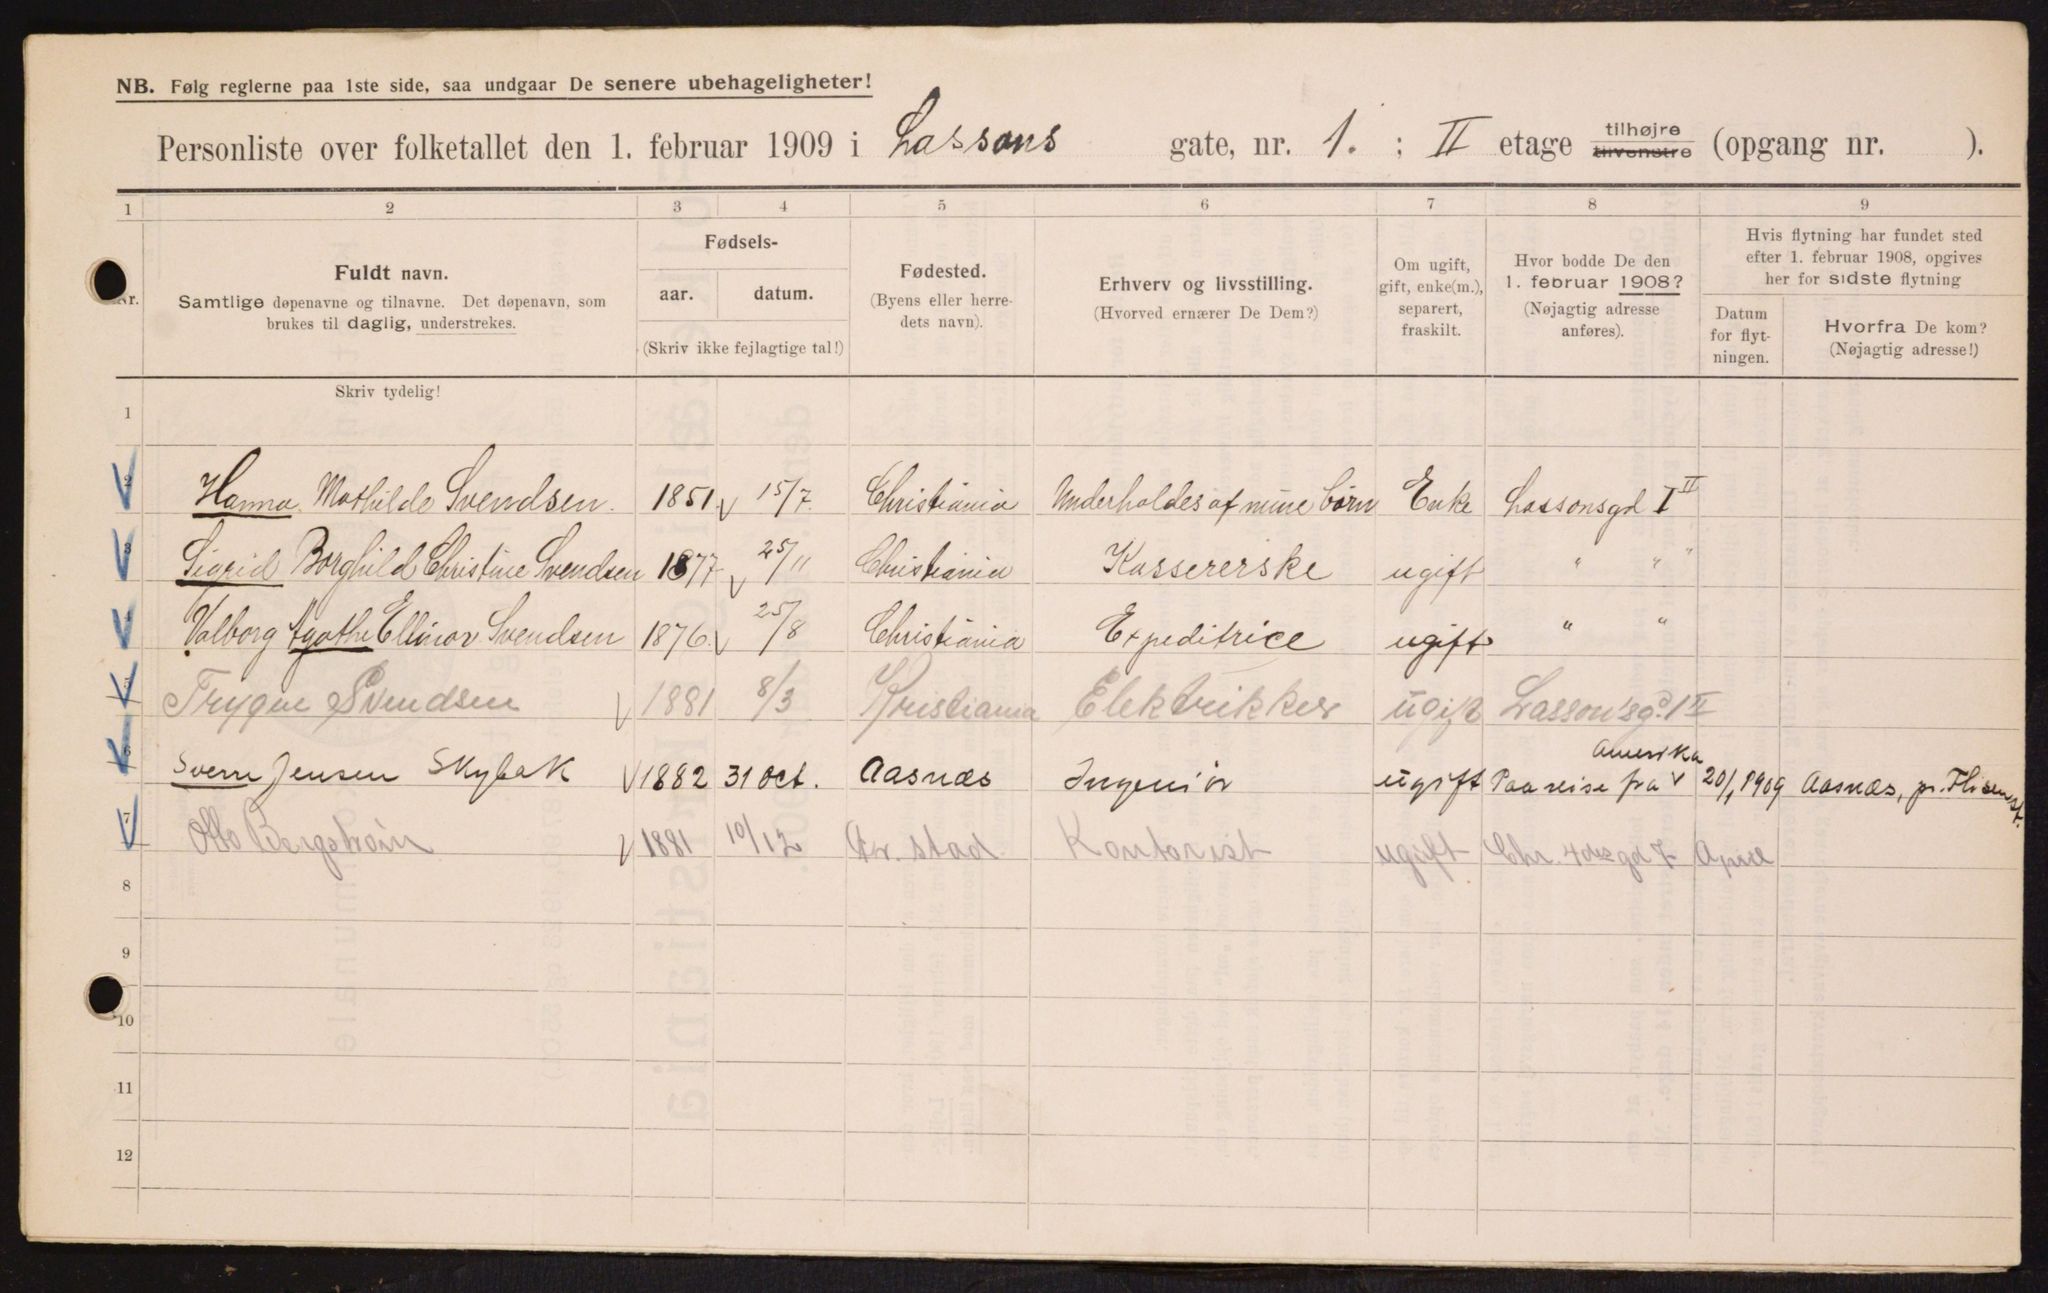 NB. Følg reglerne paa 1ste side, saa undgaar De senere ubehageligheter!
Personliste over folketallet den 1. februar 1909 i Lassons gate, nr. 1. ; II etage tilhøjre tilvenstre (opgang nr. ).
1 2 3 4 5 6 7 8 9
Nr.
Fuldt navn.
Samtlige døpenavne og tilnavne. Det døpenavn, som
brukes til daglig, understrekes.
Skriv tydelig!
Fødsels-
aar. datum.
(Skriv ikke fejlagtige tal!)
Fødested.
(Byens eller herre-
dets navn).
Erhverv og livsstilling.
(Hvorved ernærer De Dem?)
Om ugift,
gift, enke(m.),
separert,
fraskilt.
Hvor bodde De den
1. februar 1908?
(Nøjagtig adresse
anføres).
Hvis flytning har fundet sted
efter 1. februar 1908, opgives
her for sidste flytning
Datum
for flyt-
ningen.
Hvorfra De kom?
(Nøjagtig adresse!)
1
2 Hanna Mathilde Svendsen. 1851 15/7. Christiania Underholdes af mine børn Enke Lassonsgd I II
3 Sigrid Borghild Christine Svendsen 1877 25/11 Christiania Kassererske ugift " "
4 Valborg Agathe Ellinor Svendsen 1876 25/8 Christiania Expeditrice ugift " "
5 Trygve Svendsen 1881 8/3 Kristiania Elektrikker ugift Lasson'sgd. 1 II
6 Sverre Jensen Skybak 1882 31 oct. Aasnæs Ingeniør ugift Paa reise fra Amerika 20/1 1909 Aasnæs, pr. Flisen st.
7 Otto Bergstrøm 1881 10/12 Fr. stad Kontorist ugift Chr. 4des gd 7 April
8
9
10
11
12